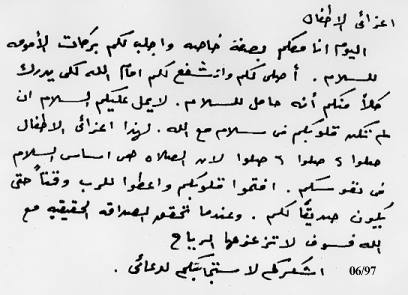 اعزائي الاطفال
اليوم انا معكم بصفة خاصه واجلب لكم بركات الأمومه
للسلام . أصلي لكم واتشفع لكم امام الله لكي يدرك
كلاً منكم أنه حامل للسلام . لايحل عليكم السلام ان
لم تكن قلوبكم فى سلام مع الله . لهذا اعزائى الاطفال
صلوا ، صلوا ، صلوا لان الصلاه هى اساس السلام
فى نفوسكم . افتحوا قلوبكم واعطوا للرب وقتاً حتى
يكون صديقاً لكم . وعندما تتحقق الصداقه الحقيقيه مع
الله فسوف لا تزعزعها الرياح
اشكركم لاستجابتكم لدعائى .
06/97